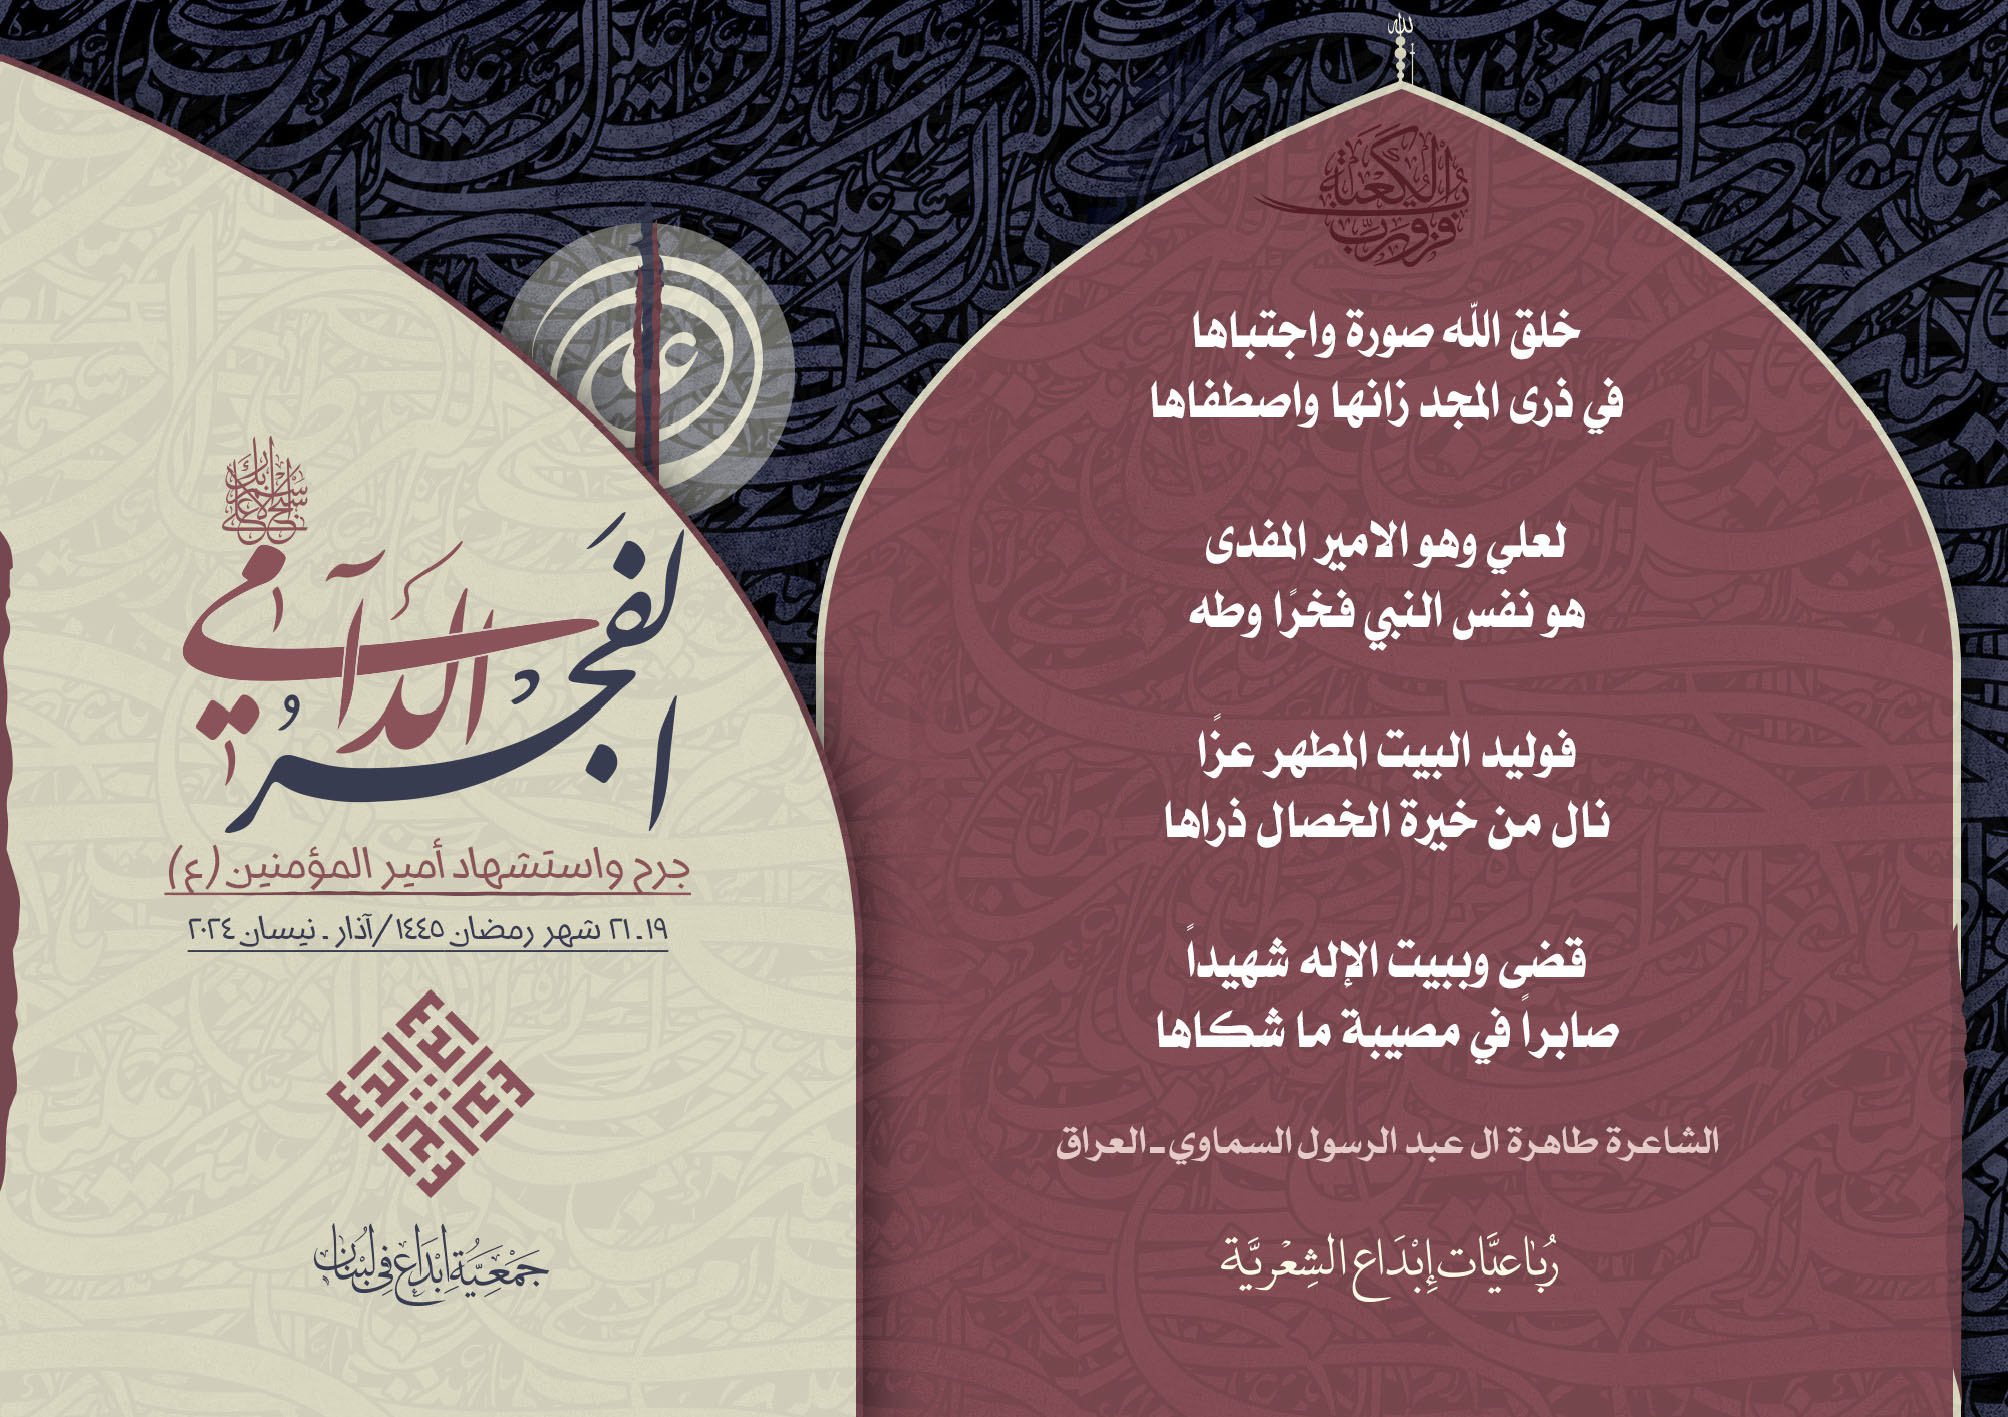 لله
فزت ورب الكعبة
خلق الله صورة واجتباها
في ذرى المجد زانها واصطفاها
لعلي وهو الامير المفدى
هو نفس النبي فخرًا وطه
فوليد البيت المطهر عزًا
نال من خيرة الخصال ذراها
قضى وببيت الإله شهيداً
صابراً في مصيبة ما شكاها
الشاعرة طاهرة ال عبد الرسول السماوي ـ العراق
رُبَاعيَّات إِبْدَاع الشِعريَّة
علي
سبح اسم ربك الأعلى
الفَجرُ الدَّامي
جرح واستشهاد أمير المؤمنين (ع)
١٩ ـ ٢١ شهر رمضان ١٤٤٥ / آذار ـ نيسان ٢٠٢٤
جَمْعِيَّة إِبْدَاع في لبْنَان